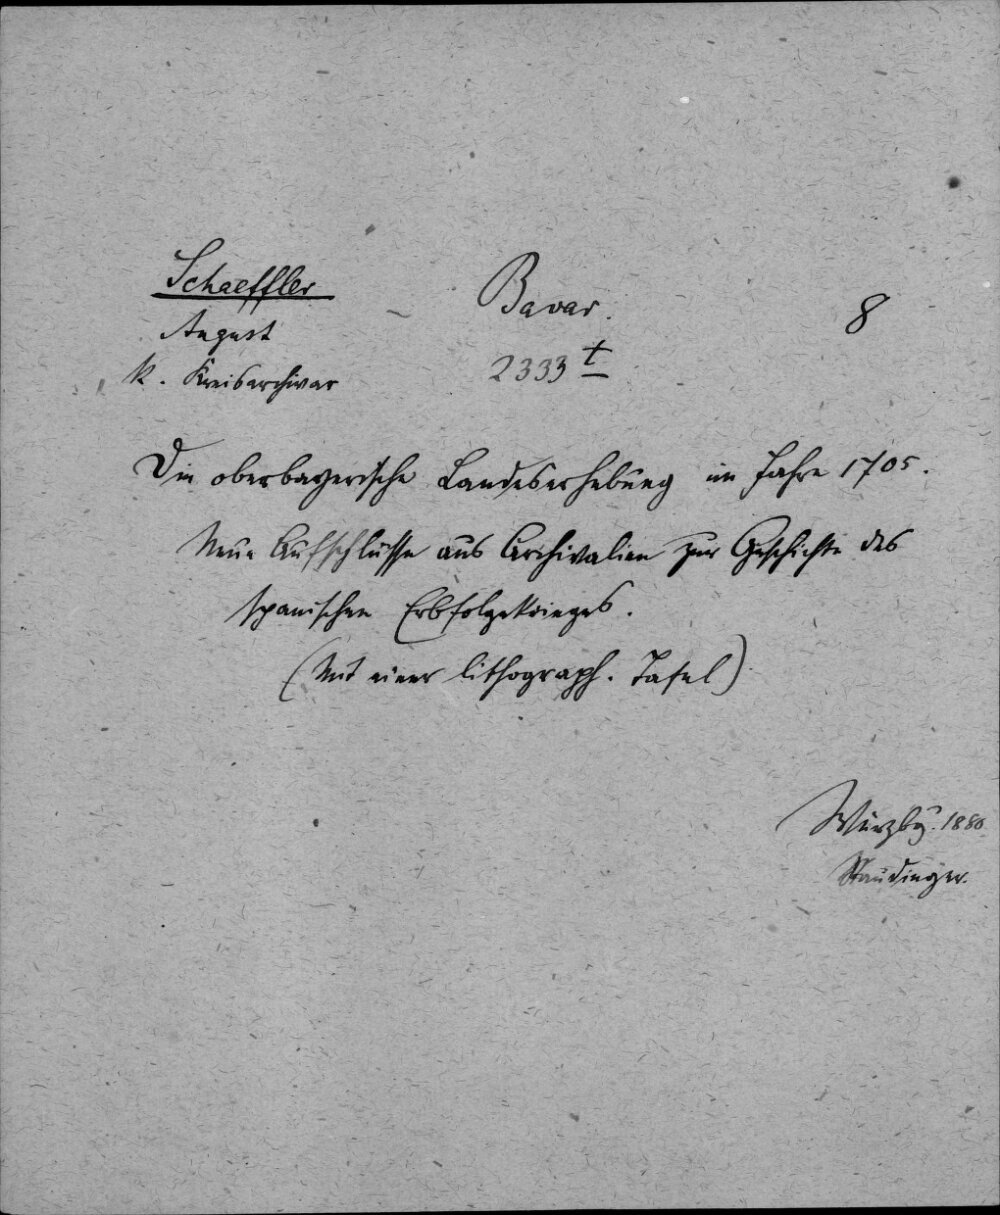 Schaeffler
Bavar.
8
August
2333 t
k. Kreisarchivar
Die oberbayerische Landeserhebung im Jahre 1705.
Neue Aufschlüsse aus Archivalien zur Geschichte des
spanischen Erbfolgekrieges.
(Mit einer lithograph. Tafel)
Würzbg. 1880
Staudinger.